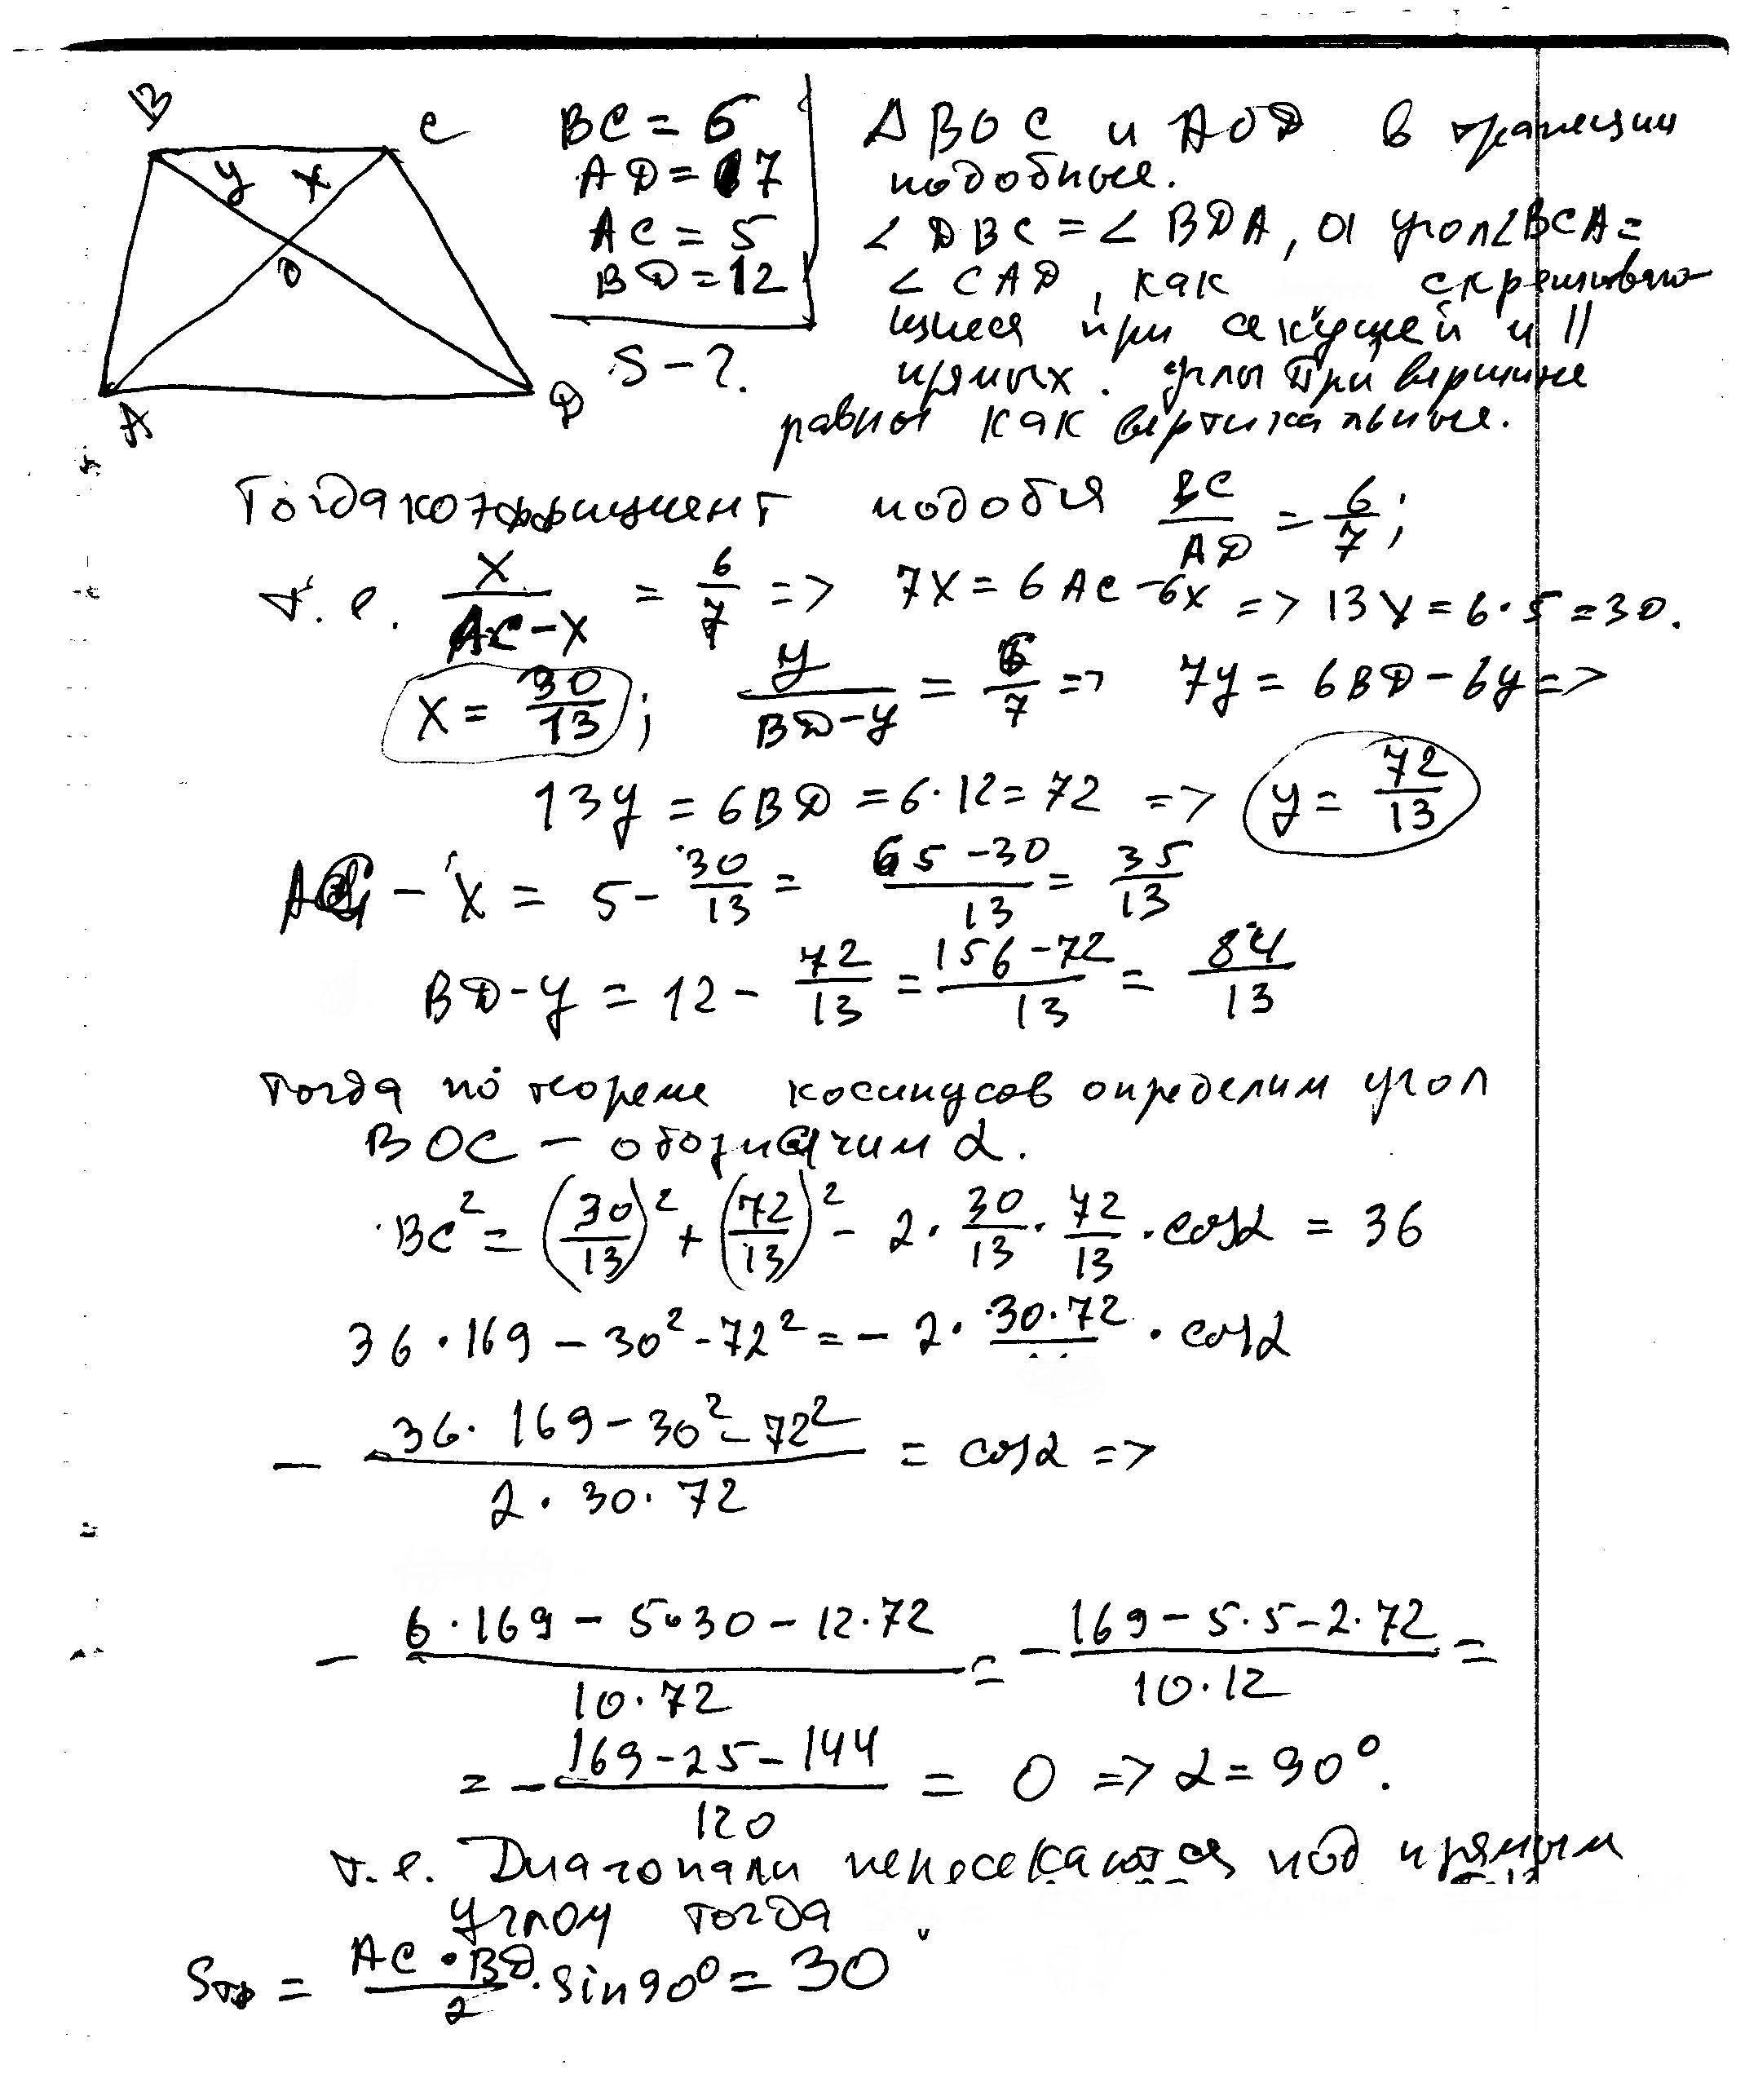 B
C
y x
O
A
D
BC = 6
AD = 7
AC = 5
BD = 12
S - ?
Δ BOC и AOD в трапеции
подобные.
∠ DBC = ∠ BDA, а угол ∠BCA =
∠ CAD, как скрещиваю
щиеся при секущей и ||
прямых. углы при вершине
равны как вертикальные.
Тогда коэффициент подобия BC/AD = 6/7;
т. е. x/(AC - x) = 6/7 => 7x = 6AC - 6x => 13x = 6·5 = 30.
x = 30/13; y/(BD - y) = 6/7 => 7y = 6BD - 6y =>
13y = 6BD = 6·12 = 72 => y = 72/13
AC - x = 5 - 30/13 = (65 - 30)/13 = 35/13
BD - y = 12 - 72/13 = (156 - 72)/13 = 84/13
тогда по теореме косинусов определим угол
BOC - обозначим α.
BC² = (30/13)² + (72/13)² - 2 · 30/13 · 72/13 · cosα = 36
36 · 169 - 30² - 72² = - 2 · 30·72 · cosα
- (36 · 169 - 30² - 72²)/(2 · 30 · 72) = cosα =>
- (6 · 169 - 5·30 - 12·72)/(10·72) = - (169 - 5·5 - 2·72)/(10·12) =
= - (169 - 25 - 144)/120 = 0 => α = 90°.
т. е. Диагонали пересекаются под прямым
углом тогда
Sтр = (AC · BD)/2 · sin90° = 30